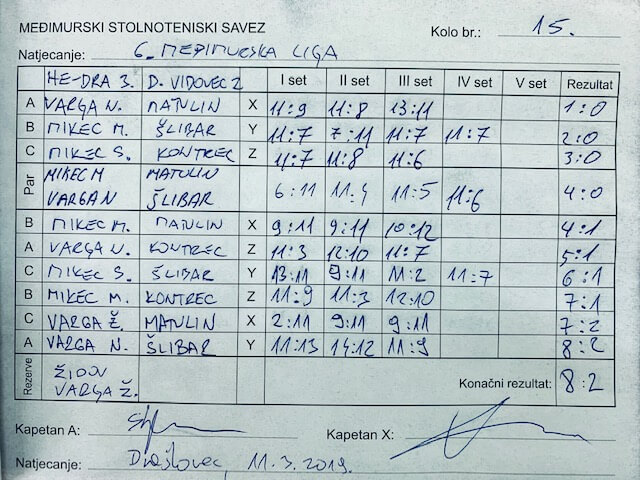 MEĐIMURSKI STOLNOTENISKI SAVEZ
Kolo br.: 15.
Natjecanje: 6. MEĐIMURSKA LIGA
HE-DRA 3. D. VIDOVEC 2 I set II set III set IV set V set Rezultat
A VARGA N. MATULIN X 11:9 11:8 13:11 1:0
B MIKEC M. ŠLIBAR Y 11:7 7:11 11:7 11:7 2:0
C MIKEC S. KONTREC Z 11:7 11:8 11:6 3:0
Par MIKEC M MATULIN
VARGA N ŠLIBAR 6:11 11:4 11:5 11:6 4:0
B MIKEC M. MATULIN X 9:11 9:11 10:12 4:1
A VARGA N. KONTREC Z 11:3 12:10 11:7 5:1
C MIKEC S. ŠLIBAR Y 13:11 9:11 11:2 11:7 6:1
B MIKEC M. KONTREC Z 11:9 11:3 12:10 7:1
C VARGA Ž. MATULIN X 2:11 9:11 9:11 7:2
A VARGA N. ŠLIBAR Y 11:13 14:12 11:9 8:2
Rezerve VARGA Ž.
Konačni rezultat: 8:2
Kapetan A:
Kapetan X:
Natjecanje: Draškovec, 11.3.2019.